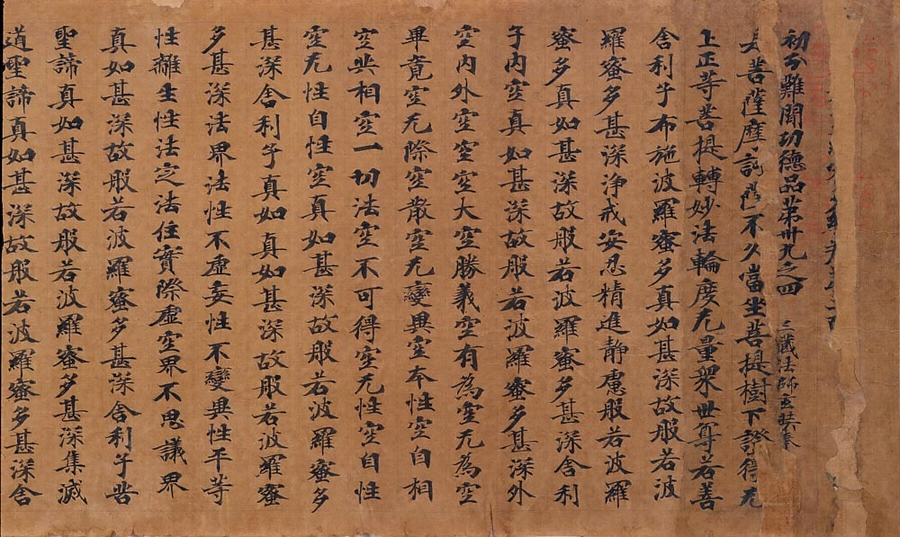 初分難聞功德品第卅九之四 三藏法師玄奘奉
菩薩摩訶薩不久當坐菩提樹下證得无
上正等菩提轉妙法輪度无量衆世尊若善
舍利子布施波羅蜜多真如甚深故般若波
羅蜜多甚深淨戒安忍精進静慮般若波羅
蜜多真如甚深故般若波羅蜜多甚深舍利
子内空真如甚深故般若波羅蜜多甚深外
空内外空空空大空勝義空有為空无為空
畢竟空无際空散空无變異空本性空自相
空共相空一切法空不可得空无性空自性
空无性自性空真如甚深故般若波羅蜜多
甚深舍利子真如真如甚深故般若波羅蜜
多甚深法界法性不虚妄性不變異性平等
性離生性法定法住實際虚空界不思議界
真如甚深故般若波羅蜜多甚深舍利子苦
聖諦真如甚深故般若波羅蜜多甚深集滅
道聖諦真如甚深故般若波羅蜜多甚深舍